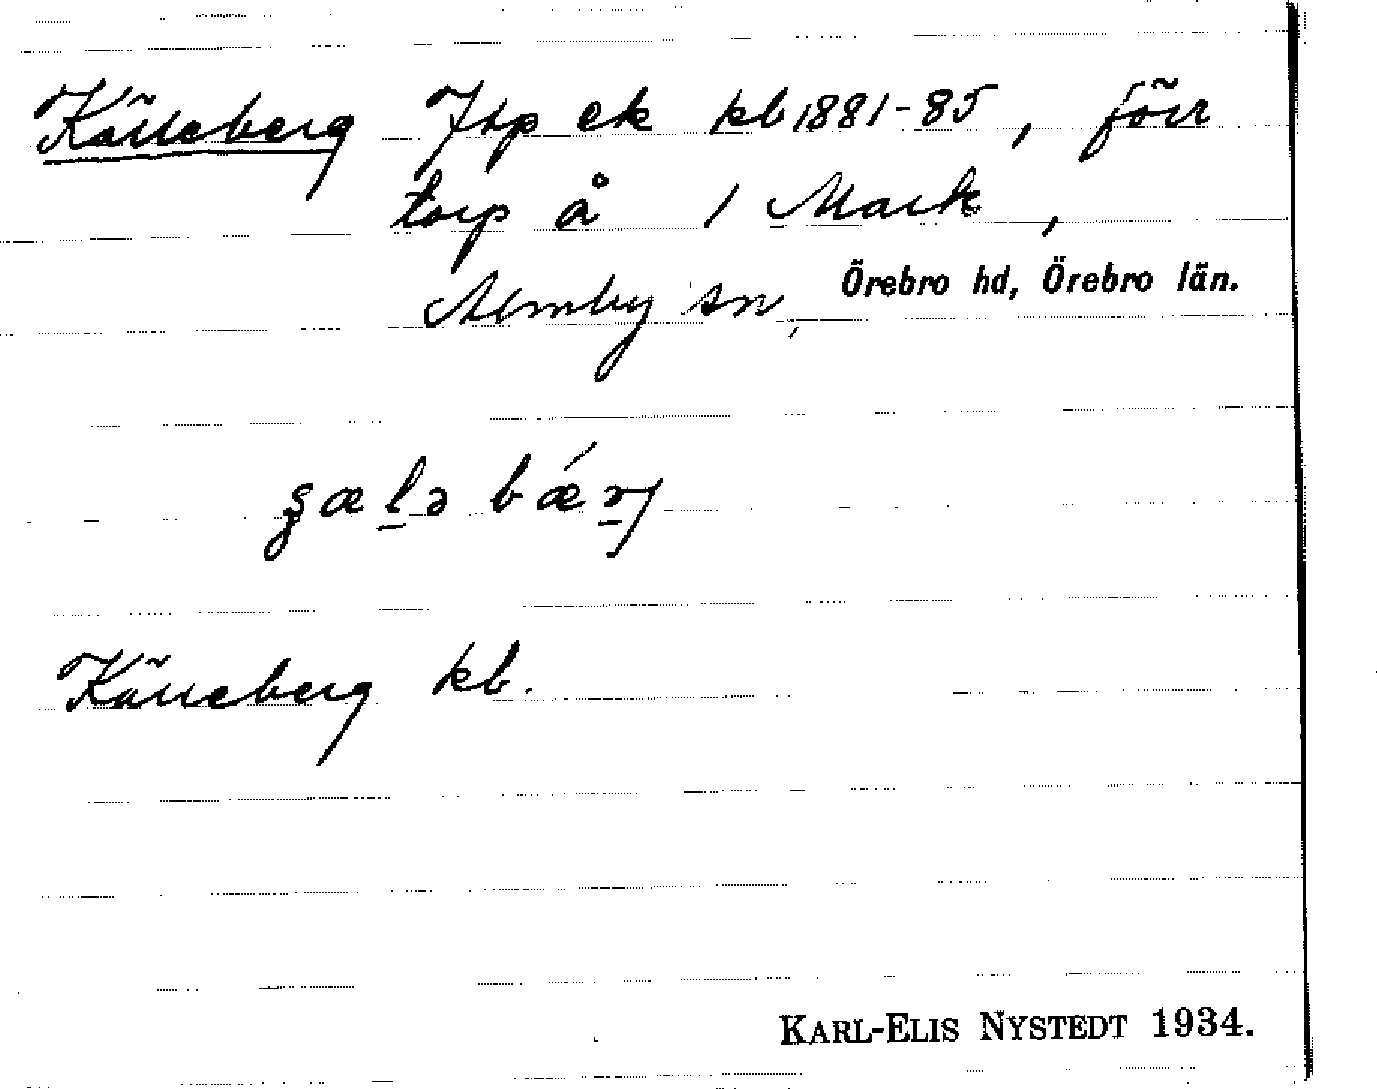 Källeberg Jhp ek kb 1881-85, förr
torp å 1 Mark,
Almby sn, Örebro hd, Örebro län.
Källeberg kb.
KARL-ELIS NYSTEDT 1934.